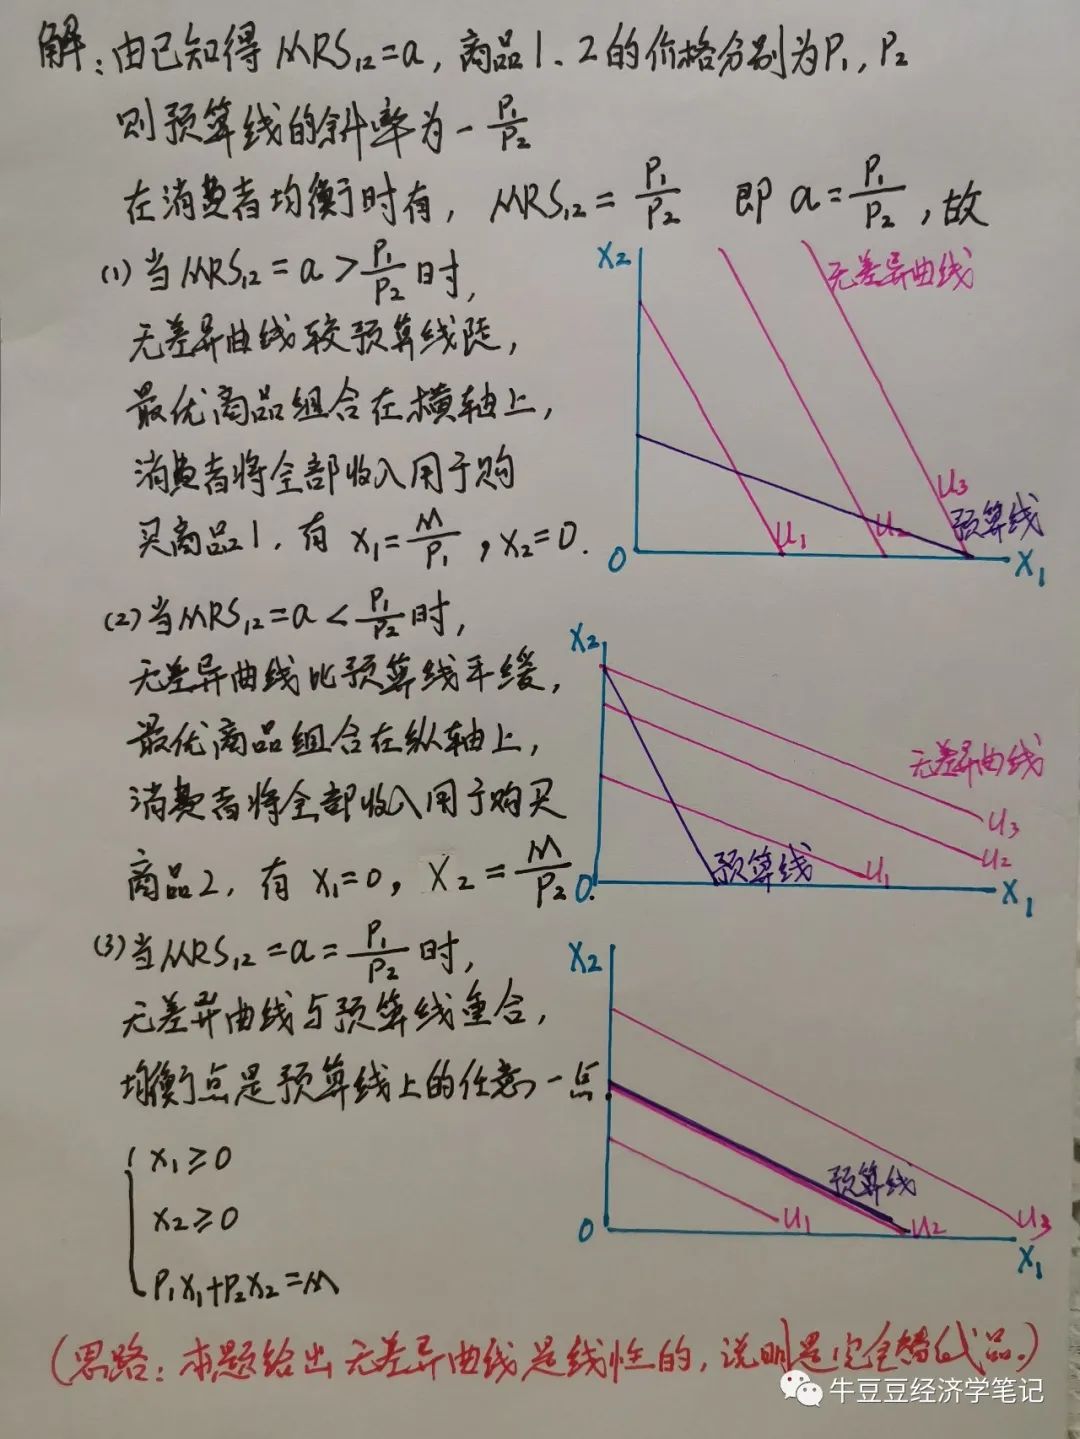 解：由已知得 MRS₁₂=a，商品1、2的价格分别为P₁，P₂
则预算线的斜率为-P₁/P₂
在消费者均衡时有，MRS₁₂=P₁/P₂ 即 a=P₁/P₂，故
(1)当MRS₁₂=a>P₁/P₂时，
无差异曲线较预算线陡，
最优商品组合在横轴上，
消费者将全部收入用于购
买商品1，有 x₁=M/P₁，x₂=0.
X₂
无差异曲线
U₃
预算线
U₁
U₂
0
X₁
(2)当MRS₁₂=a<P₁/P₂时，
无差异曲线比预算线平缓，
最优商品组合在纵轴上，
消费者将全部收入用于购买
商品2，有 x₁=0，X₂=M/P₂.
X₂
无差异曲线
U₃
U₂
预算线
U₁
0
X₁
(3)当MRS₁₂=a=P₁/P₂时，
无差异曲线与预算线重合，
均衡点是预算线上的任意一点.
x₁≥0
x₂≥0
P₁x₁+P₂x₂=M
X₂
预算线
U₁
U₂
U₃
0
X₁
(思路：本题给出无差异曲线是线性的，说明是完全替代品。)
牛豆豆经济学笔记